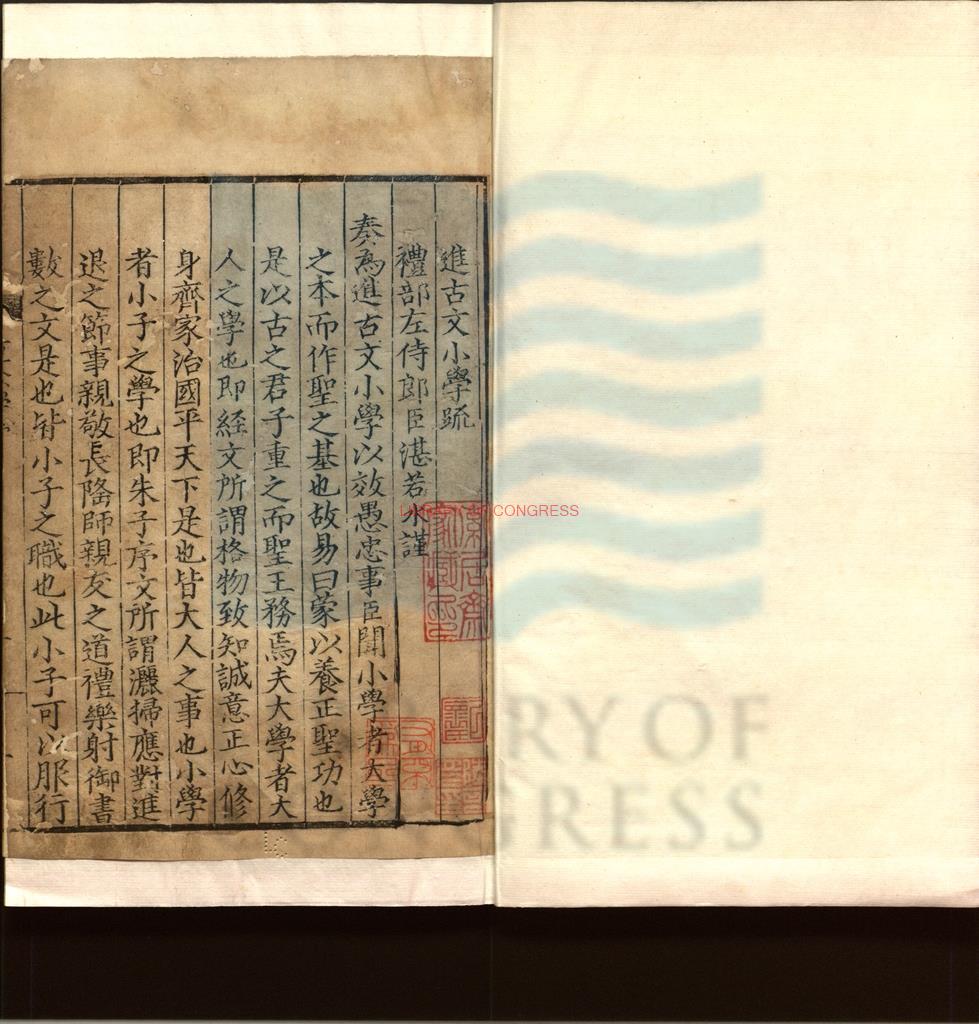 進古文小學疏
禮部左侍郎臣湛若水謹
奏為進古文小學以效愚忠事臣聞小學者大學
之本而作聖之基也故易曰蒙以養正聖功也
是以古之君子重之而聖王務焉夫大學者大
人之學也即經文所謂格物致知誠意正心修
身齊家治國平天下是也皆大人之事也小學
者小子之學也即朱子序文所謂灑掃應對進
退之節事親敬長隆師親友之道禮樂射御書
數之文是也皆小子之職也此小子可以服行
LIBRARY OF CONGRESS
RY OF
GRESS